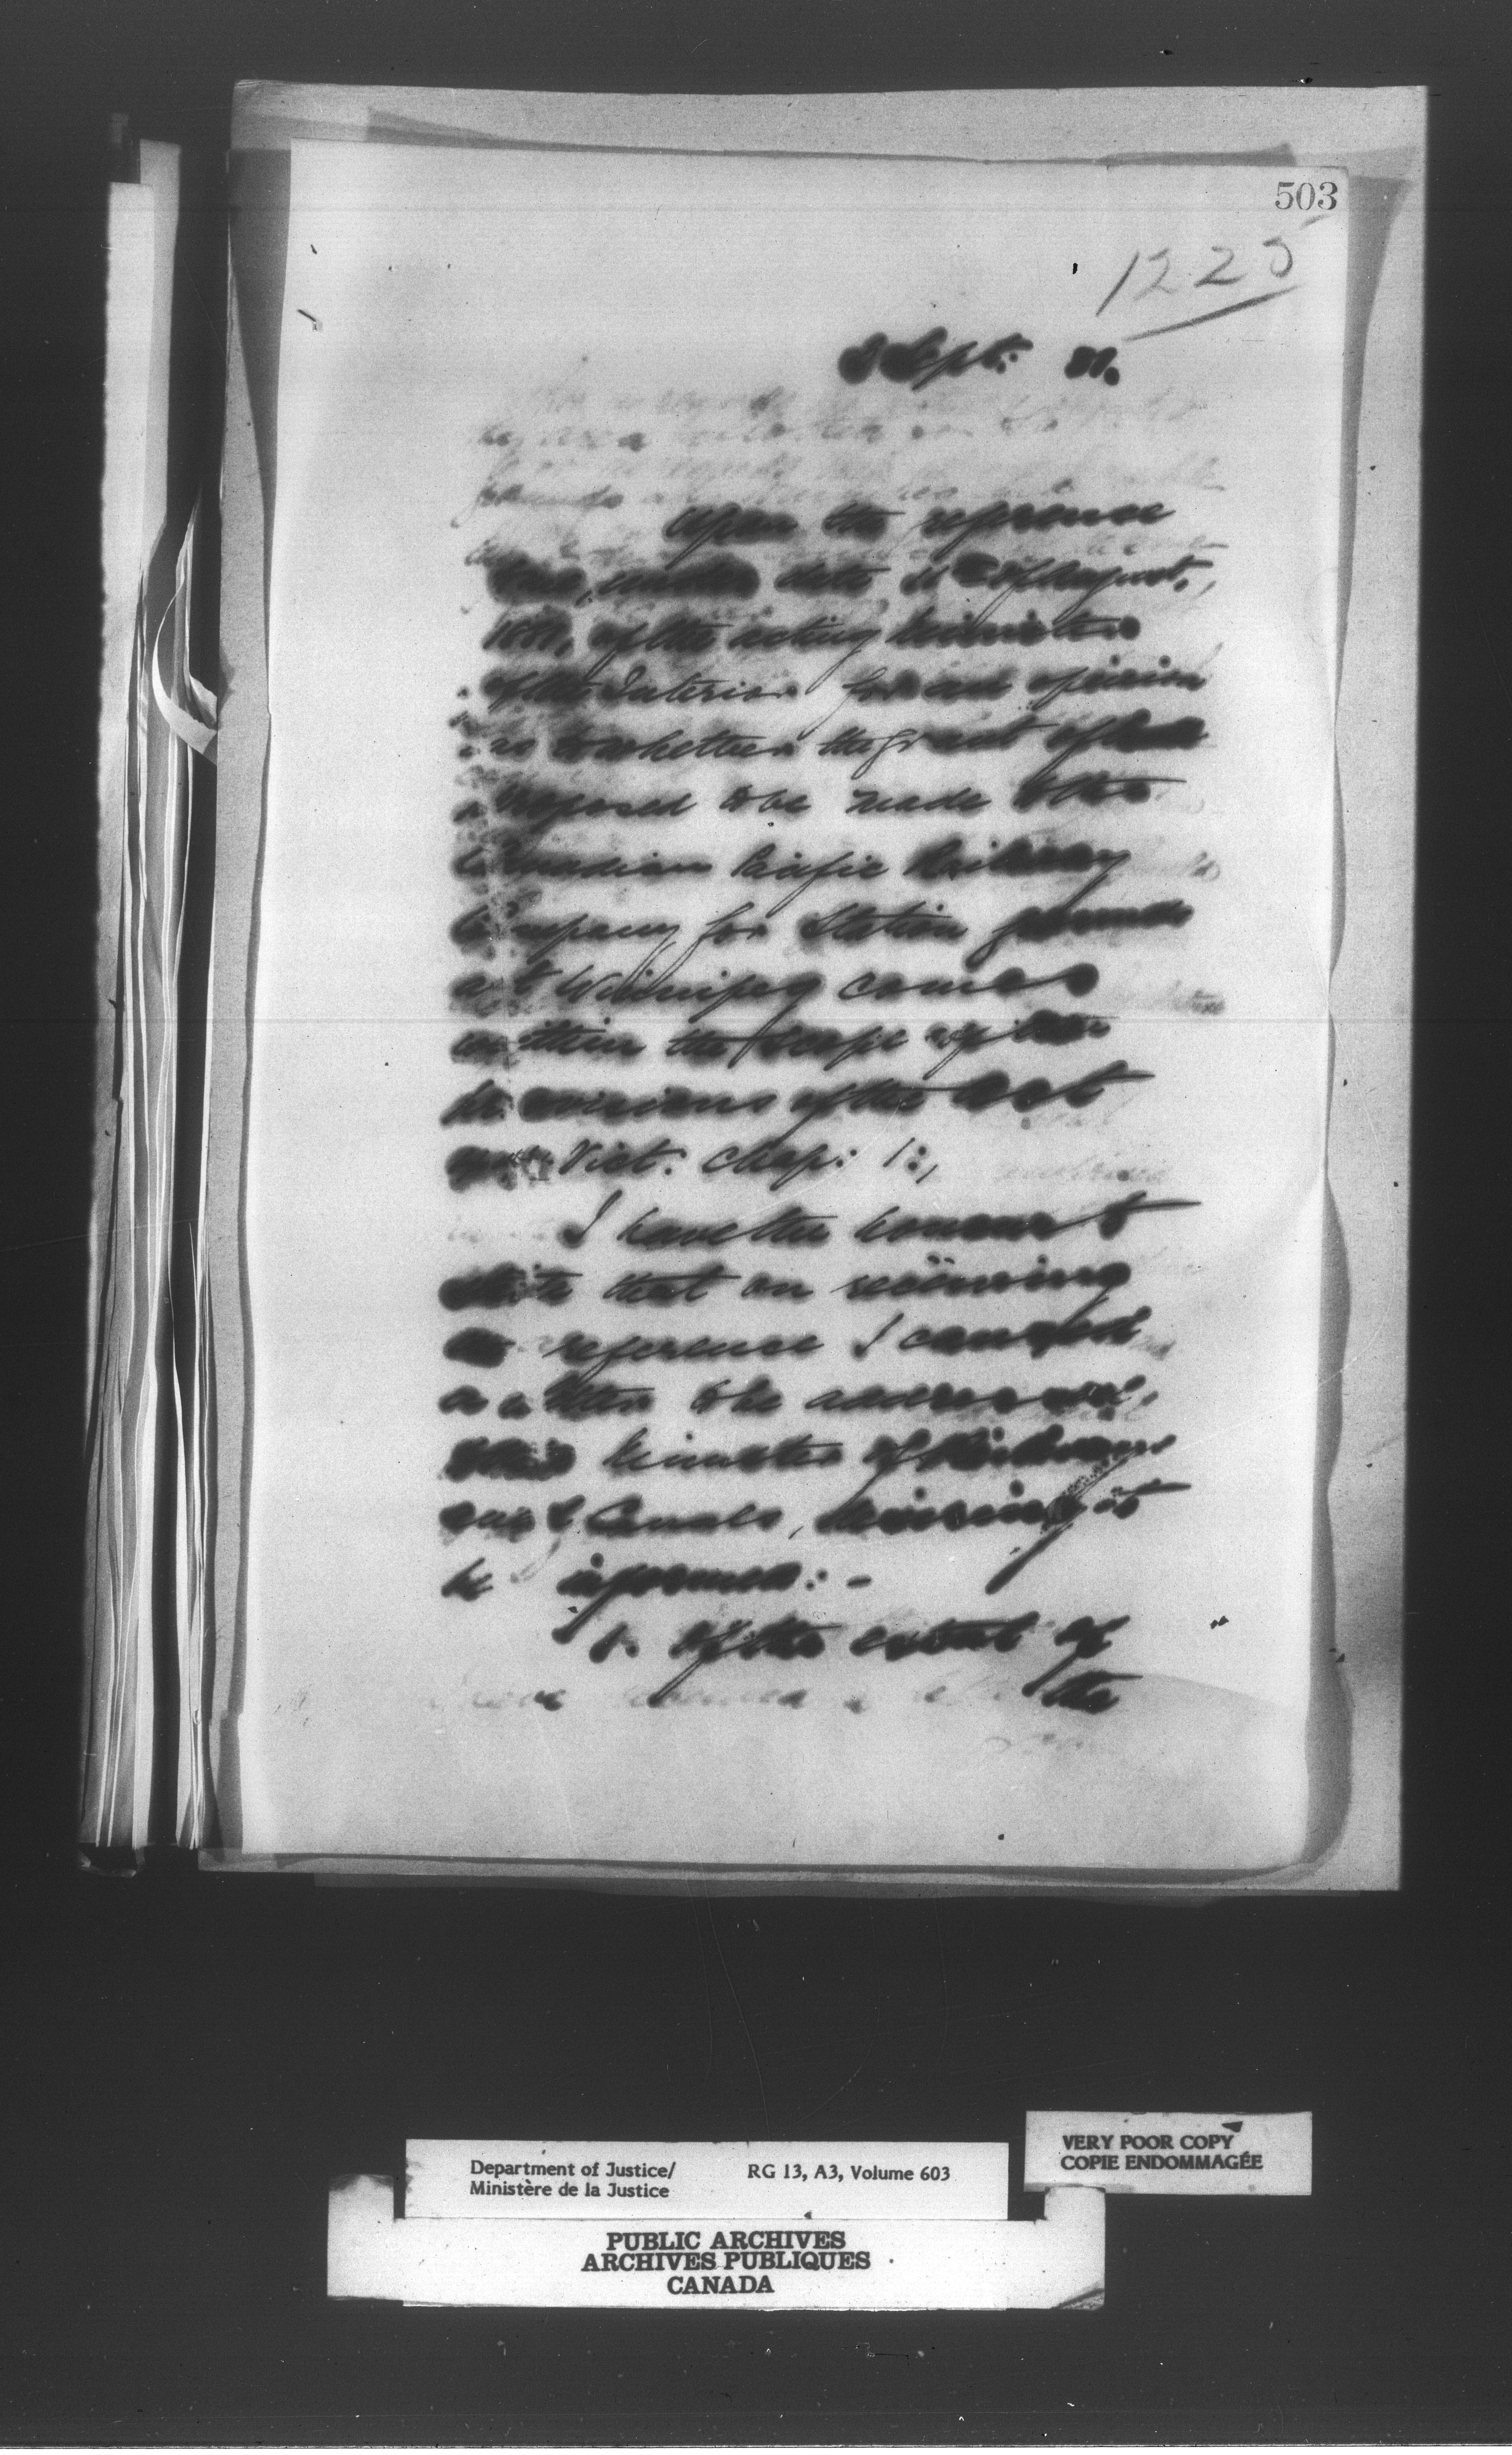 503
1225
Sept:
Upon the reference
under date of August,
of the acting Minister
of the Interior for an opinion
as to whether the grant of
proposed to be made to the
Canadian Pacific Railway
Company for Station grounds
at Winnipeg comes
within the scope of the
provisions of the Act
Vict: Chap: 1:,
I have the honour to
state that on receiving
the reference I caused
a letter to be addressed
to the Minister of Railways
and Canals, desiring to
be informed:-
1. Of the extent of
the
Department of Justice/
Ministère de la Justice
RG 13, A3, Volume 603
VERY POOR COPY
COPIE ENDOMMAGÉE
PUBLIC ARCHIVES
ARCHIVES PUBLIQUES
CANADA